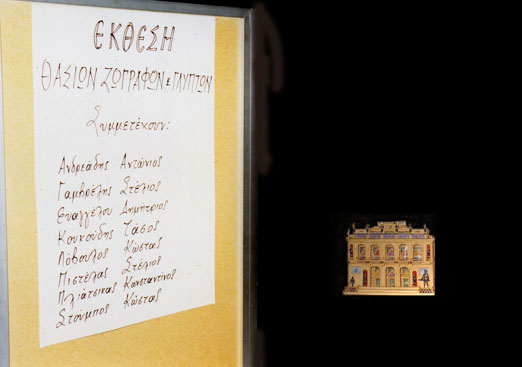 ΕΚΘΕΣΗ
ΘΑΣΙΩΝ ΖΩΓΡΑΦΩΝ & ΓΛΥΠΤΩΝ
Συμμετέχουν:
Ανδρεάδης Αντώνιος
Γαμβρέλης Στέλιος
Ευαγγέλου Δημήτριος
Κουκούδης Τάσος
Λόβουλος Κώστας
Πιστέλας Στέλιος
Πλιάτσικας Κωνσταντίνος
Στούμπος Κώστας